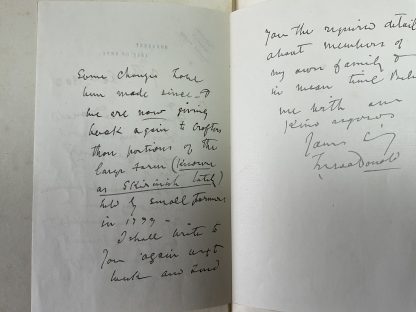 Some changes have
been made since - &
we are now giving
back again to Crofters
those portions of the
large farm (known
as Skirinish lately)
held by small farmers
in 1799 -
I shall write to
you again next
week and send
you the required details
about members of
my own family &
in mean time Believe
me with our
kind regards
Yours